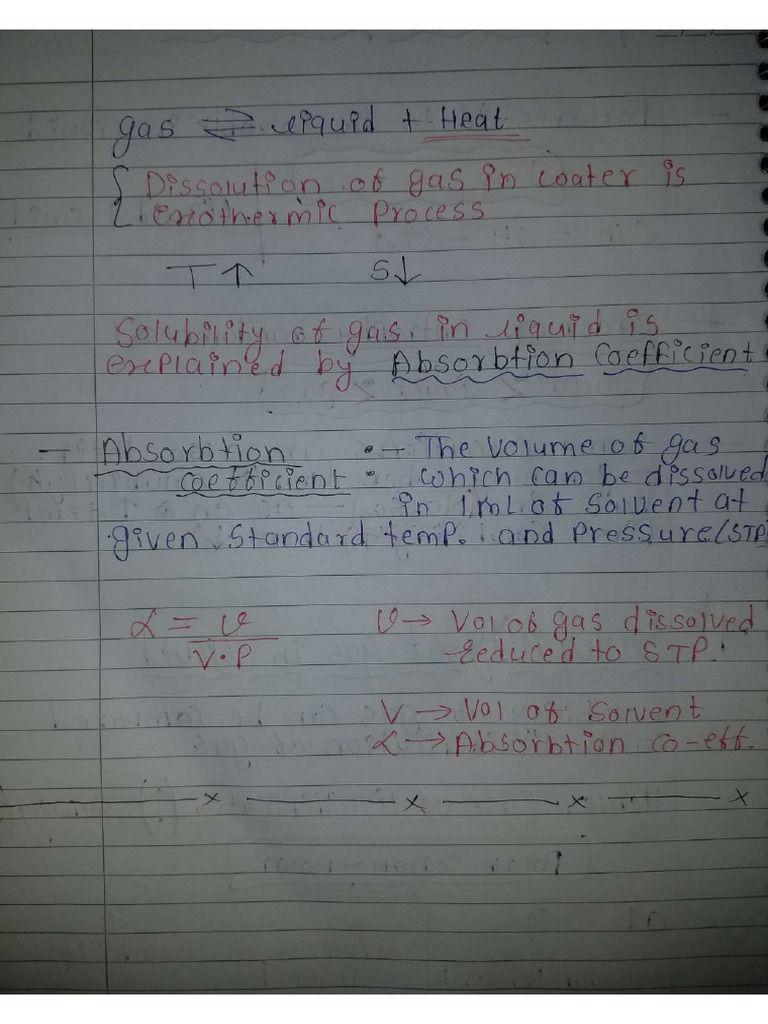 gas ⇌ liquid + Heat
{ Dissolution of gas in water is
exothermic Process
T↑ S↓
Solubility of gas. in liquid is
explained by Absorbtion Coefficient
— Absorbtion •- The Volume of gas
coefficient • which can be dissolved
in 1mL of Solvent at
given standard temp. and Pressure (STP
α = v / V·P v → Vol of gas dissolved
reduced to STP.
V → Vol of Solvent
α → Absorbtion co-eff.
——x ——x ——x ——x